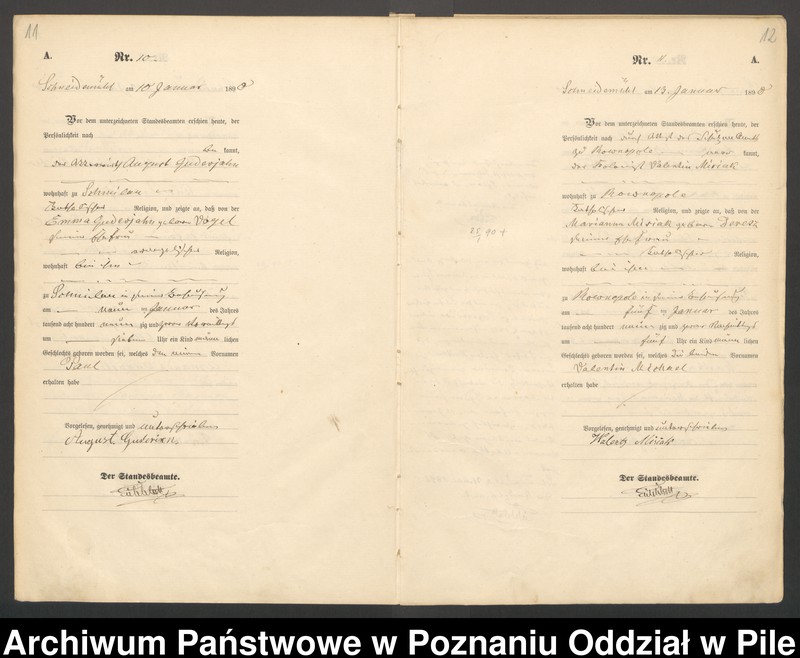 11
A.
Nr. 10
Schneidemühl am 10 Januar 1890
Vor dem unterzeichneten Standesbeamten erschien heute, der
Persönlichkeit nach
be kannt,
der August Guderjahn
wohnhaft zu
Katholischer Religion, und zeigte an, daß von der
Emma Guderjahn geborne Vogel
seiner Ehefrau
evangelischer Religion,
wohnhaft bei ihm
zu in seiner Behausung
am neun ten Januar des Jahres
tausend acht hundert neun zig und zwar Vormittags
um sieben Uhr ein Kind männ lichen
Geschlechts geboren worden sei, welches den einen Vornamen
Paul
erhalten habe
Vorgelesen, genehmigt und unterschrieben
August
Der Standesbeamte.
12
Nr. 11
A.
Schneidemühl am 13 Januar 1890
Vor dem unterzeichneten Standesbeamten erschien heute, der
Persönlichkeit nach durch Attest des Schulzen Amts
zu Kownopole aner kannt,
der Kolonist Valentin Misiak
wohnhaft zu Kownopole
Katholischer Religion, und zeigte an, daß von der
Marianna Misiak geborne
seiner Ehefrau
Katholischer Religion,
wohnhaft bei ihm
zu Kownopole in seiner Behausung
am fünf ten Januar des Jahres
tausend acht hundert neun zig und zwar Nachmittags
um fünf Uhr ein Kind männ lichen
Geschlechts geboren worden sei, welches die beiden Vornamen
Valentin Michael
erhalten habe
Vorgelesen, genehmigt und unterschrieben
Misiak
Der Standesbeamte.
Archiwum Państwowe w Poznaniu Oddział w Pile